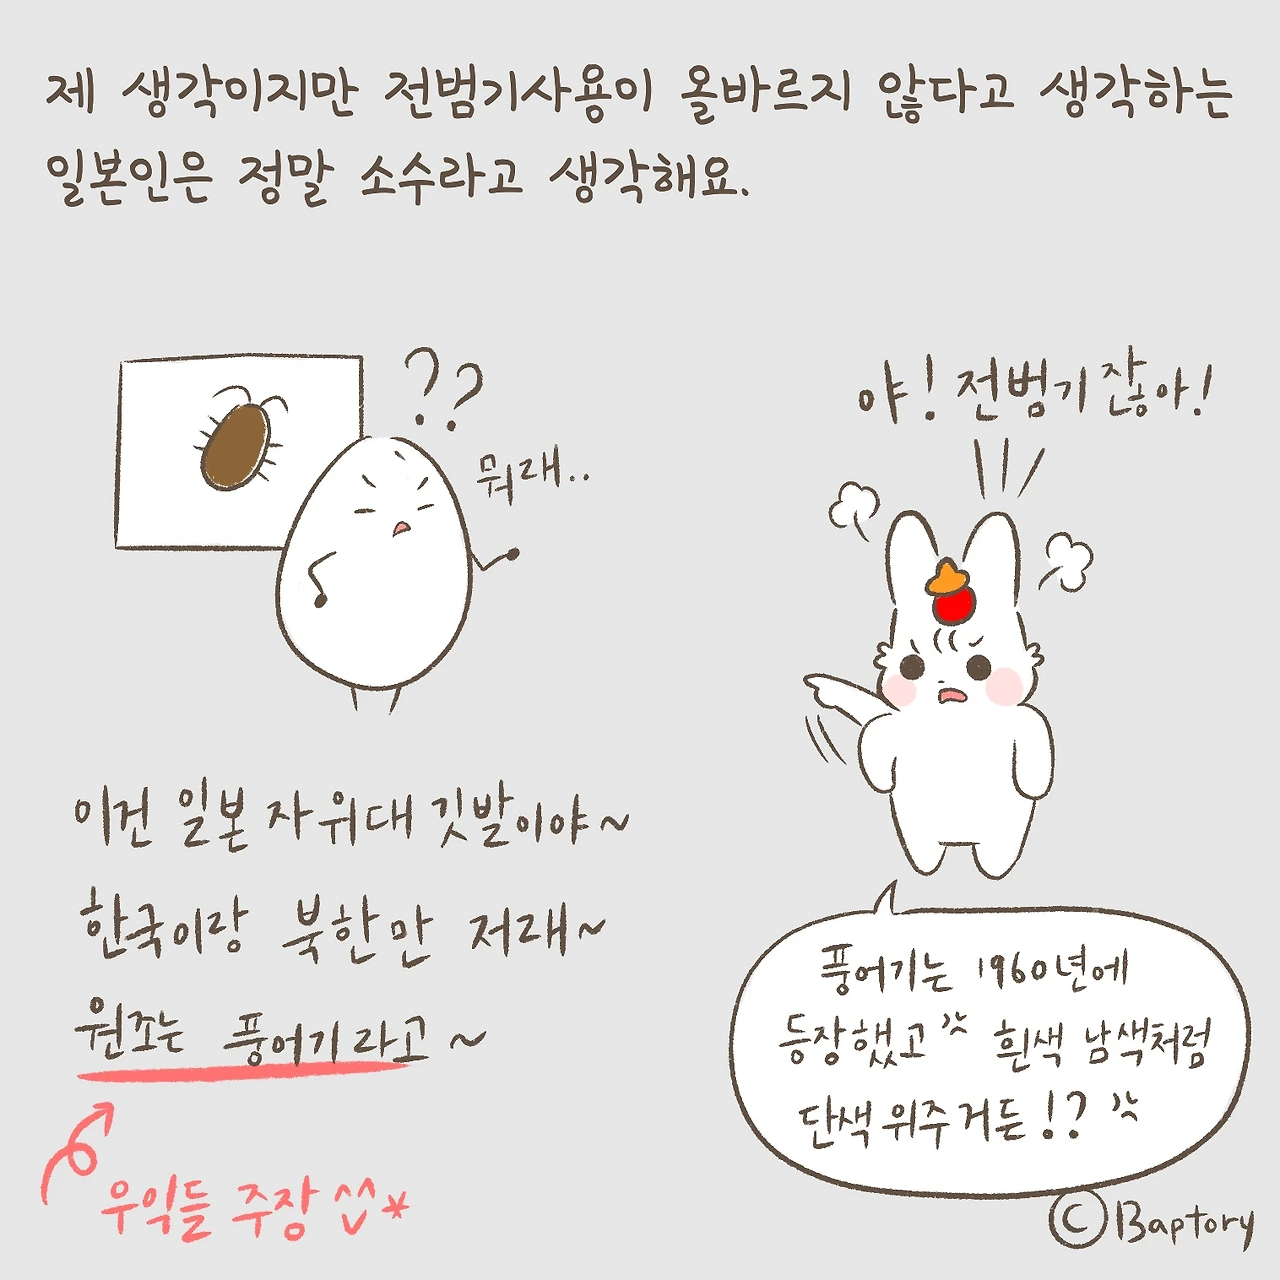 제 생각이지만 전범기사용이 올바르지 않다고 생각하는
일본인은 정말 소수라고 생각해요.
??
뭐래..
야! 전범기잖아!
이건 일본 자위대 깃발이야~
한국이랑 북한만 저래~
원조는 풍어기라고~
우익들 주장 ^^*
풍어기는 1960년에
등장했고 흰색 남색처럼
단색 위주거든!?
©Baptory